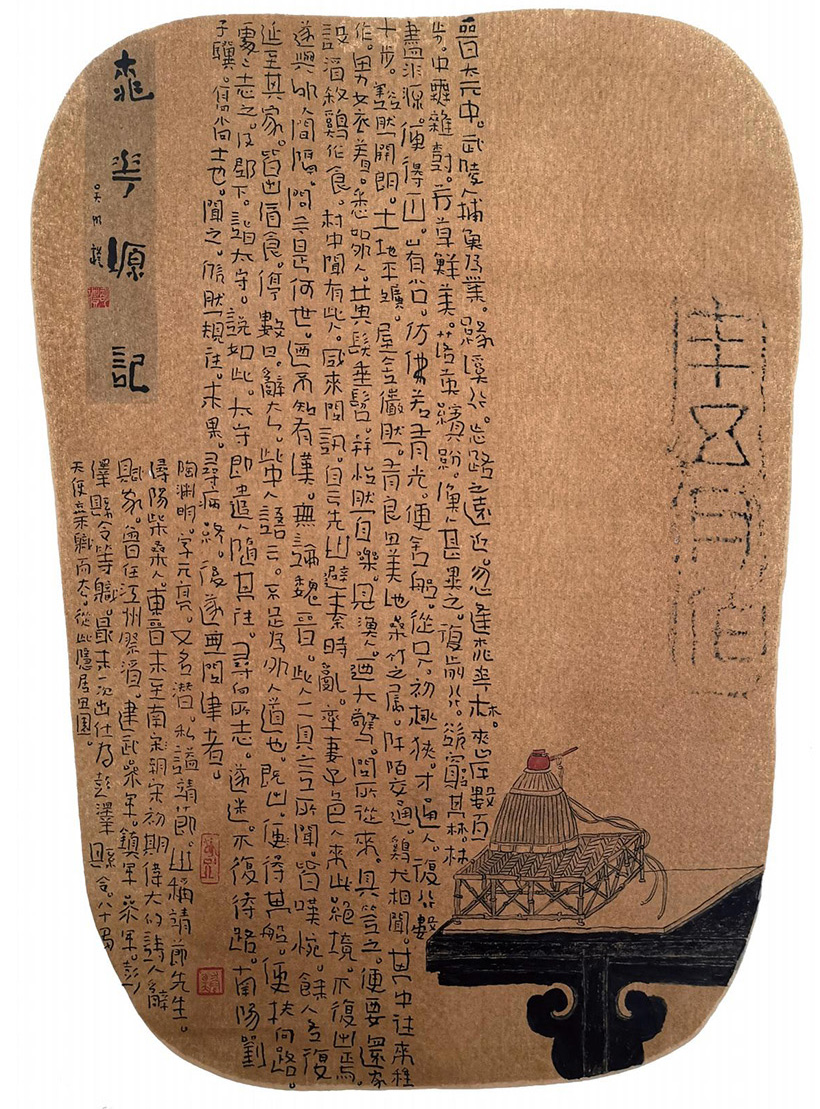 晉太元中。武陵人捕魚為業。緣溪行。忘路之遠近。忽逢桃華林。夾岸數百
步。中無雜樹。芳草鮮美。落英繽紛。漁人甚異之。復前行。欲窮其林。林
盡水源。便得一山。山有小口。仿佛若有光。便舍船。從口入。初極狹。才通人。復行數
十步。豁然開朗。土地平曠。屋舍儼然。有良田美池桑竹之屬。阡陌交通。雞犬相聞。其中往來種
作。男女衣着。悉如外人。黃髮垂髫。并怡然自樂。見漁人。迺大驚。問所從來。具答之。便要還家
設酒殺雞作食。村中聞有此人。咸來問訊。自云先世避秦時亂。率妻子邑人來此絕境。不復出焉。
遂與外人間隔。問今是何世。迺不知有漢。無論魏晉。此人一一具言所聞。皆嘆惋。餘人各復
延至其家。皆出酒食。停數日。辭去。此中人語云。不足為外人道也。既出。便得其船。便扶向路。
處處志之。及郡下。詣太守。說如此。太守即遣人隨其往。尋向所志。遂迷。不復得路。南陽劉
子驥。高尚士也。聞之。欣然規往。未果。尋病終。後遂無問津者。
陶淵明。字元亮。又名潛。私謚靖節。世稱靖節先生。
潯陽柴桑人。東晉末至南朝宋初期偉大的詩人辭
賦家。曾任江州祭酒。建武參軍。鎮軍參軍。彭
澤縣令等職。最末一次出仕為彭澤縣令。八十多
天便棄職而去。從此隱居田園。
桃華源記